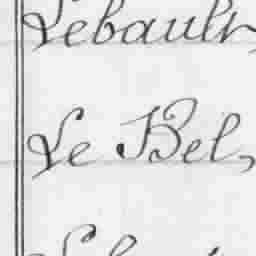 Lebault,
Le Bel,